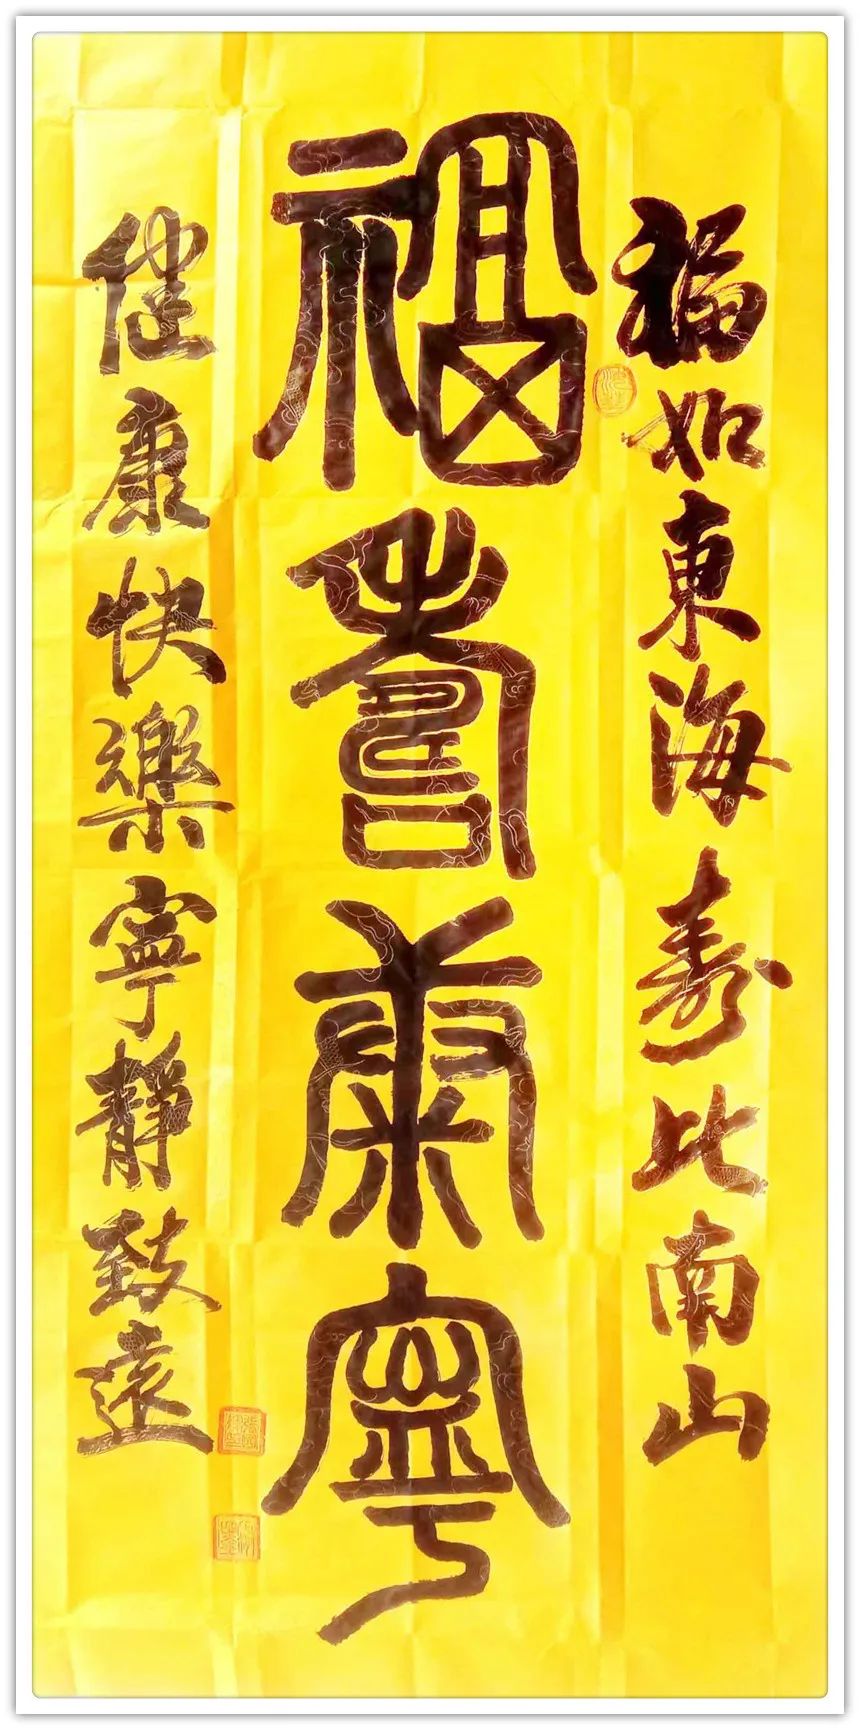 福如東海壽比南山
福壽康寧
健康快樂寧靜致遠